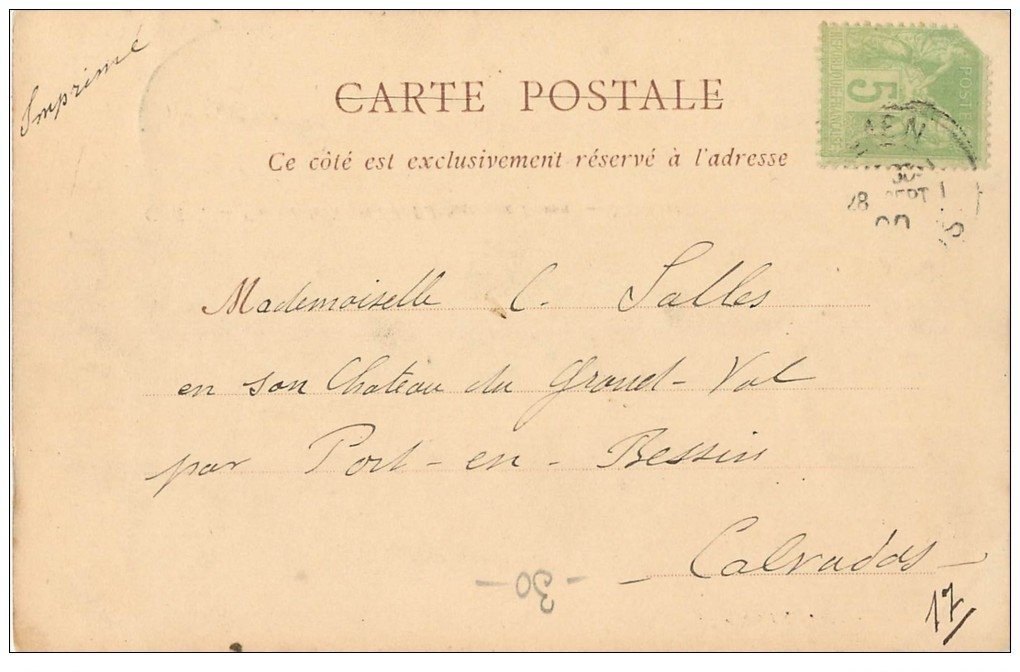 Imprimé
CARTE POSTALE
Ce côté est exclusivement réservé à l'adresse
POSTE
5
28 SEPT
Mademoiselle C. Salles
en son Chateau du Grand-Val
par Port-en-Bessin
- Calvados -
- 30 -
17